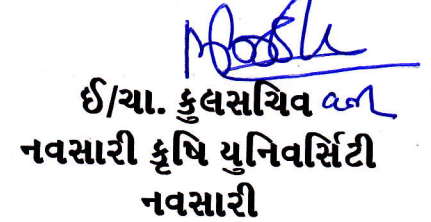 ઈ/ચા. કુલસચિવ
નવસારી કૃષિ યુનિવર્સિટી
નવસારી